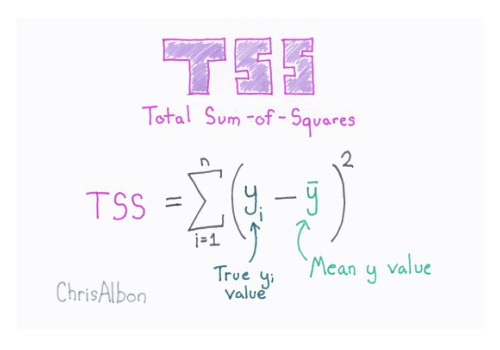 TSS
Total Sum-of-Squares
n
TSS = ∑ (yᵢ − ȳ)²
i=1
True yᵢ value
Mean y value
ChrisAlbon